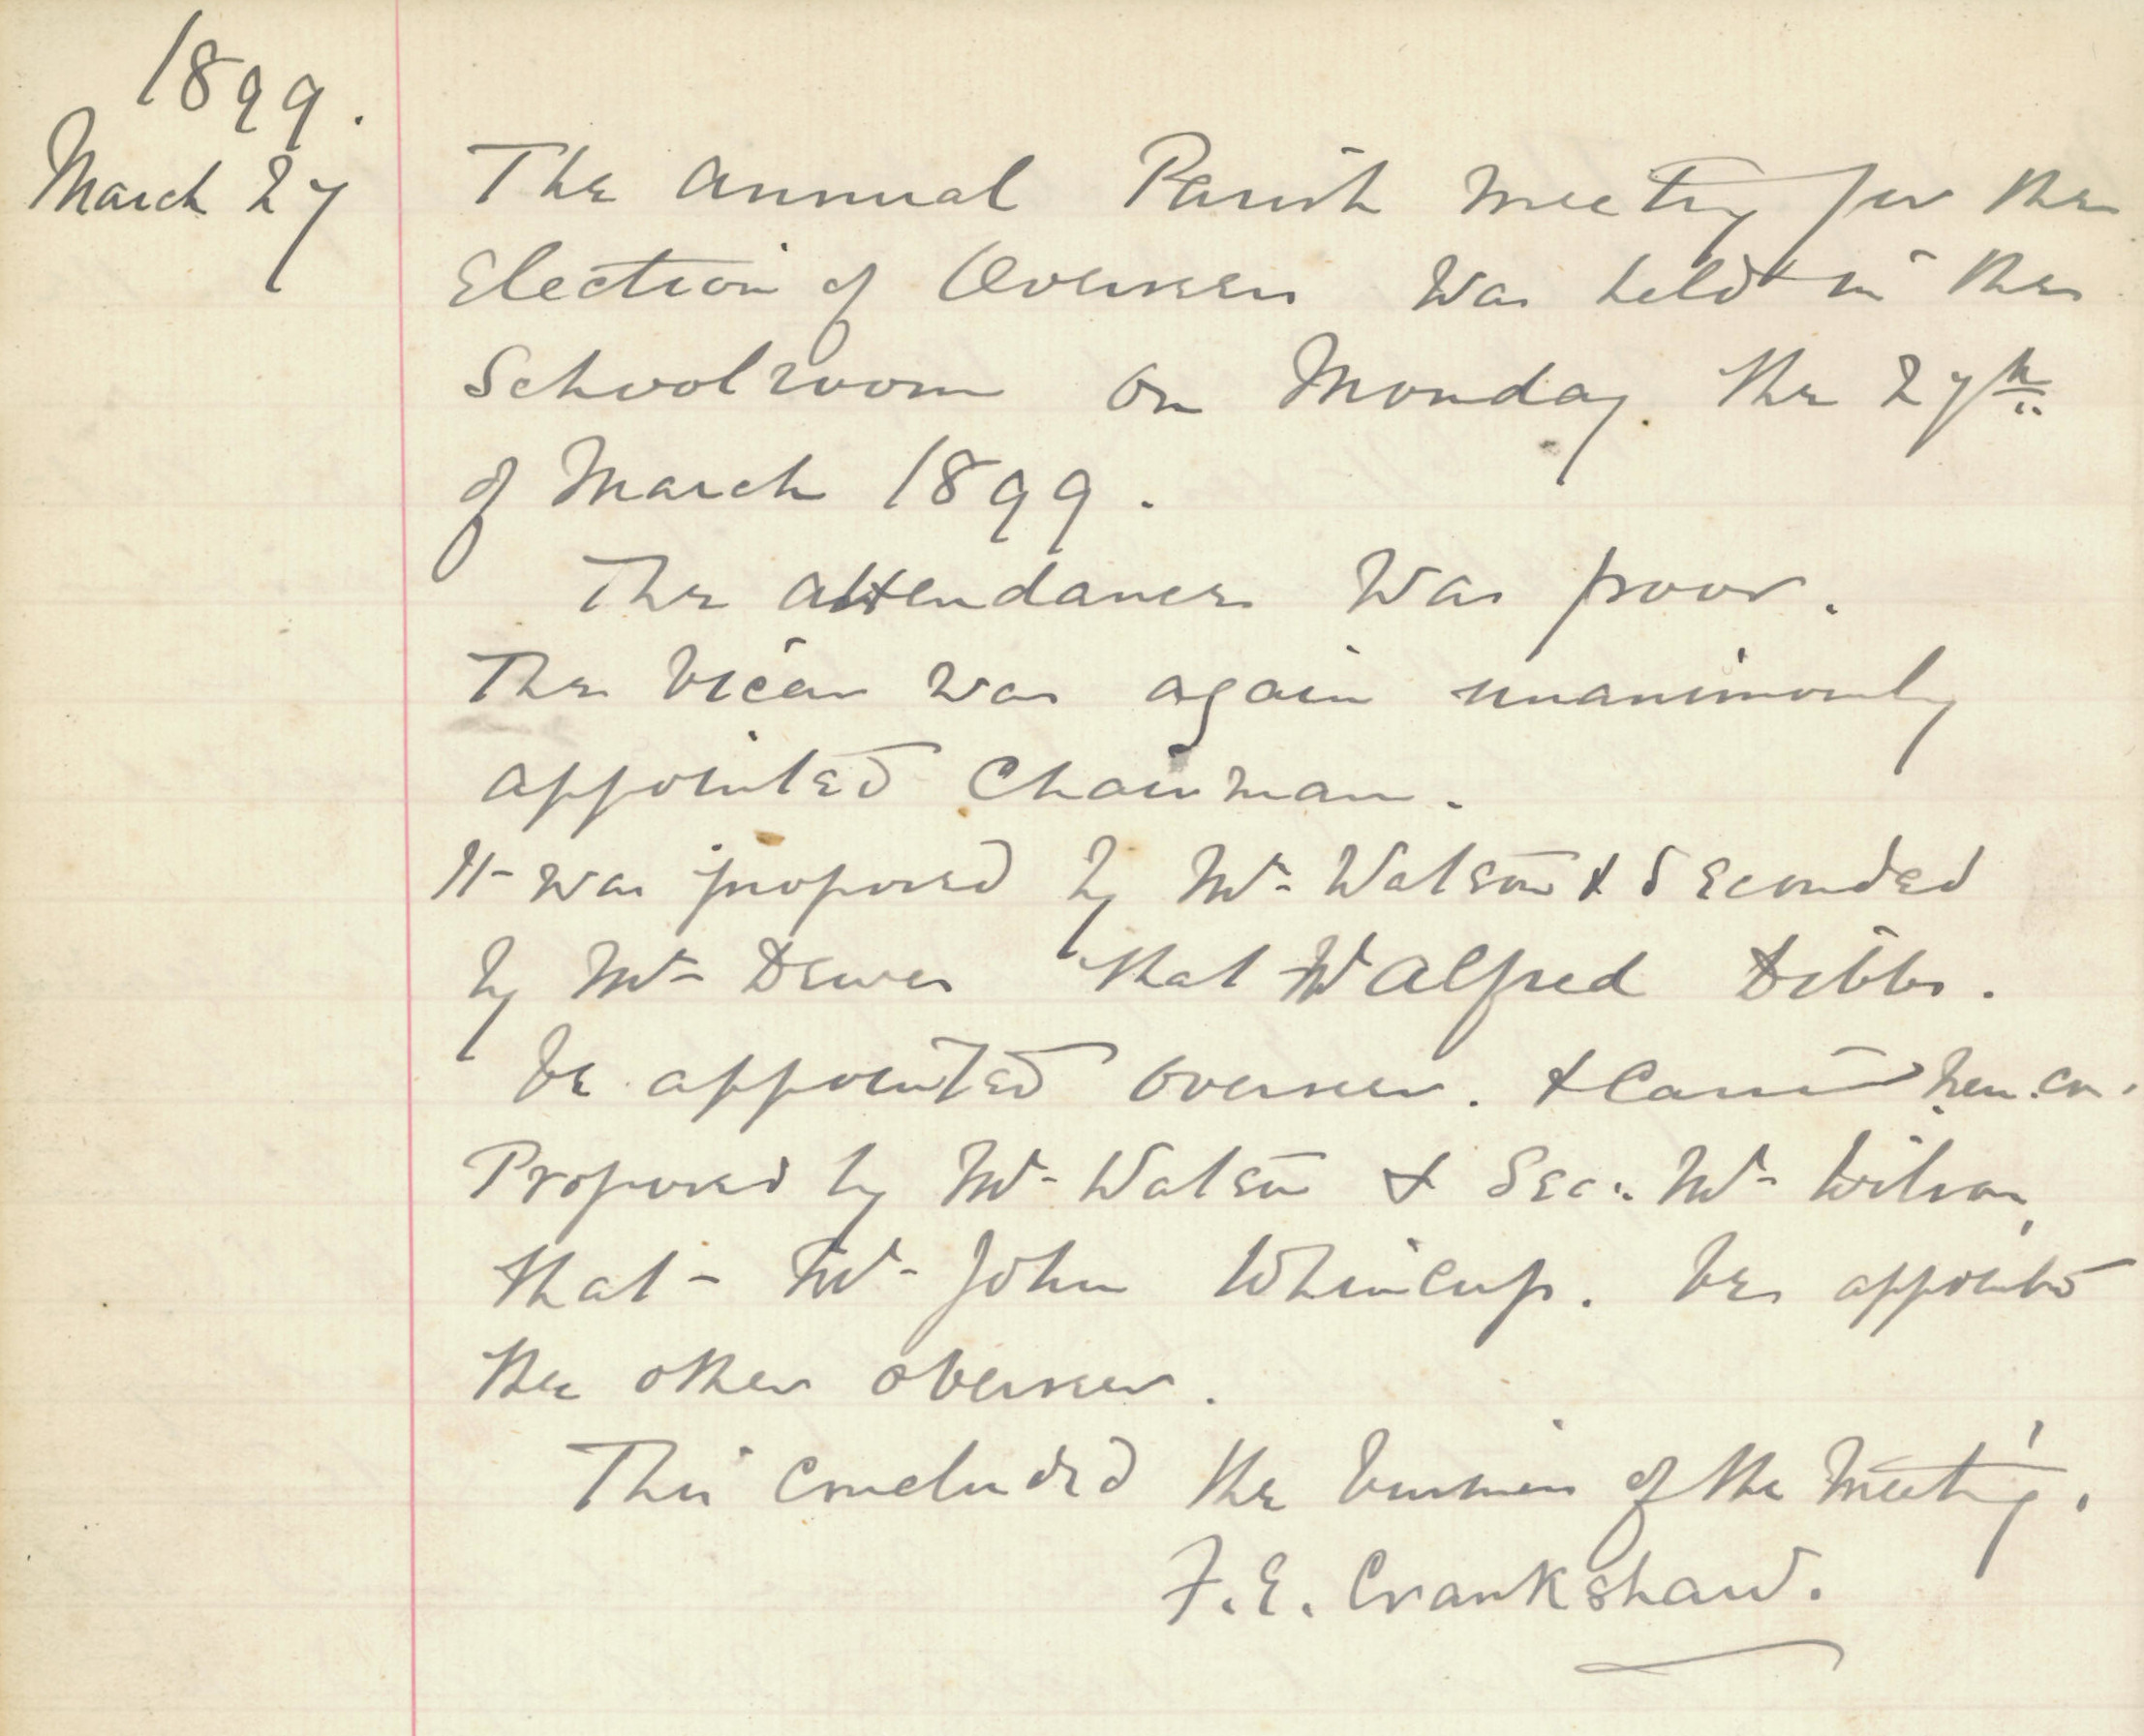 1899.
March 27
The Annual Parish Meeting for the
Election of Overseers was held in the
Schoolroom on Monday. the 27th
of March 1899.
The attendance was poor.
The Vicar was again unanimously
appointed Chairman.
It was proposed by Mr. Watson & Seconded
by Mr. Dewes that Mr Alfred Dibbs.
be appointed overseer. & Carried nem. con.
Proposed by Mr. Watson & Sec: Mr. Wilson,
that Mr. John Whincup. be appointed
the other overseer.
This concluded the business of the Meeting.
F. E. Crankshaw.